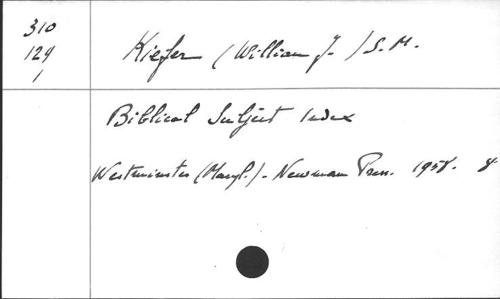 310
124
1
Kiefer (William J.) S.M.
Biblical Subject Index
Westminster (Maryl.) - Newman Press. 1958. 8